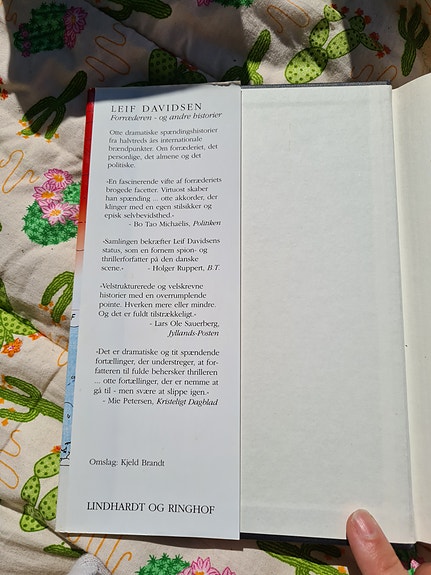 LEIF DAVIDSEN
Forræderen - og andre historier
Otte dramatiske spændingshistorier
fra halvtreds års internationale
brændpunkter. Om forræderiet, det
personlige, det almene og det
politiske.
»En fascinerende vifte af forræderiets
brogede facetter. Virtuost skaber
han spænding ... otte akkorder, der
klinger med en egen stilsikker og
episk selvbevidsthed.«
- Bo Tao Michaëlis, Politiken
»Samlingen bekræfter Leif Davidsens
status, som en fornem spion- og
thrillerforfatter på den danske
scene.« - Holger Ruppert, B.T.
»Velstrukturerede og velskrevne
historier med en overrumplende
pointe. Hverken mere eller mindre.
Og det er fuldt tilstrækkeligt.«
- Lars Ole Sauerberg,
Jyllands-Posten
»Det er dramatiske og tit spændende
fortællinger, der understreger, at for-
fatteren til fulde behersker thrilleren
... otte fortællinger, der er nemme at
gå til - men svære at slippe igen.«
- Mie Petersen, Kristeligt Dagblad
Omslag: Kjeld Brandt
LINDHARDT OG RINGHOF